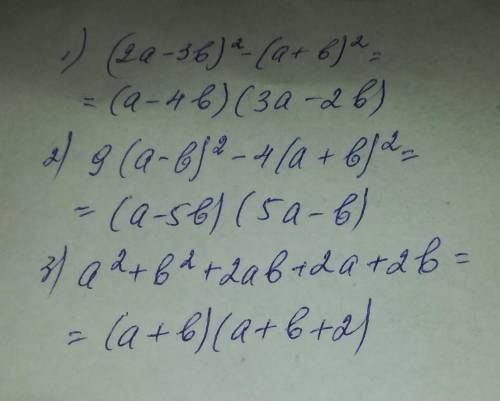 1) (2a-3b)²-(a+b)²=
=(a-4b)(3a-2b)
2) 9(a-b)²-4(a+b)²=
=(a-5b)(5a-b)
3) a²+b²+2ab+2a+2b=
=(a+b)(a+b+2)